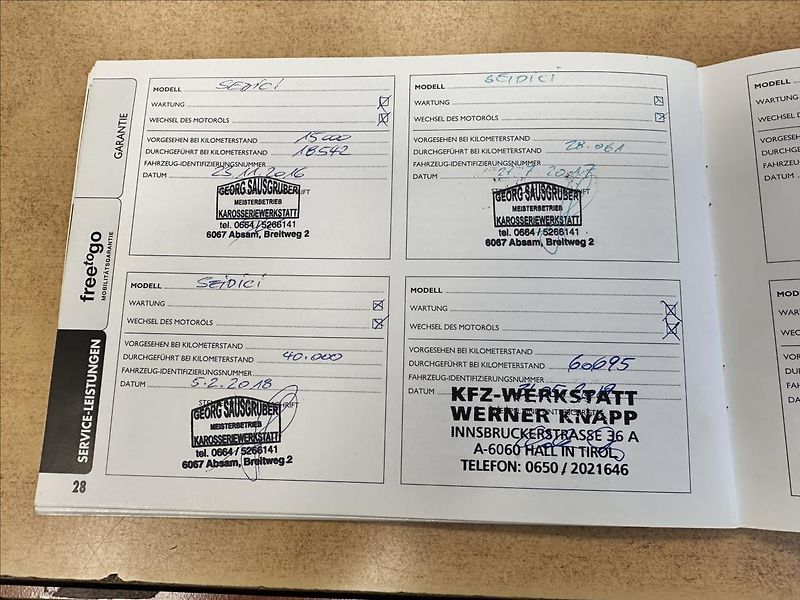 GARANTIE
freetogo
MOBILITÄTSGARANTIE
SERVICE-LEISTUNGEN
28
MODELL SEDICI
WARTUNG
WECHSEL DES MOTORÖLS
VORGESEHEN BEI KILOMETERSTAND 15000
DURCHGEFÜHRT BEI KILOMETERSTAND 18542
FAHRZEUG-IDENTIFIZIERUNGSNUMMER
DATUM 25.11.2016
GEORG SAUSGRUBER
MEISTERBETRIEB
KAROSSERIEWERKSTATT
tel. 0664 / 5266141
6067 Absam, Breitweg 2
MODELL SEIDICI
WARTUNG
WECHSEL DES MOTORÖLS
VORGESEHEN BEI KILOMETERSTAND
DURCHGEFÜHRT BEI KILOMETERSTAND 28.061
FAHRZEUG-IDENTIFIZIERUNGSNUMMER
DATUM 21.7.2017
GEORG SAUSGRUBER
MEISTERBETRIEB
KAROSSERIEWERKSTATT
tel. 0664 / 5266141
6067 Absam, Breitweg 2
MODELL SEIDICI
WARTUNG
WECHSEL DES MOTORÖLS
VORGESEHEN BEI KILOMETERSTAND
DURCHGEFÜHRT BEI KILOMETERSTAND 40.000
FAHRZEUG-IDENTIFIZIERUNGSNUMMER
DATUM 5.2.2018
GEORG SAUSGRUBER
MEISTERBETRIEB
KAROSSERIEWERKSTATT
tel. 0664 / 5266141
6067 Absam, Breitweg 2
MODELL
WARTUNG
WECHSEL DES MOTORÖLS
VORGESEHEN BEI KILOMETERSTAND
DURCHGEFÜHRT BEI KILOMETERSTAND 60695
FAHRZEUG-IDENTIFIZIERUNGSNUMMER
DATUM
KFZ-WERKSTATT
WERNER KNAPP
INNSBRUCKERSTRASSE 36 A
A-6060 HALL IN TIROL
TELEFON: 0650 / 2021646
MODELL
WARTUNG
WECHSEL DES
VORGESEHE
DURCHGEFÜ
FAHRZEUG-I
DATUM
MOD
WART
WECH
VORG
DURC
FAHR
DATU